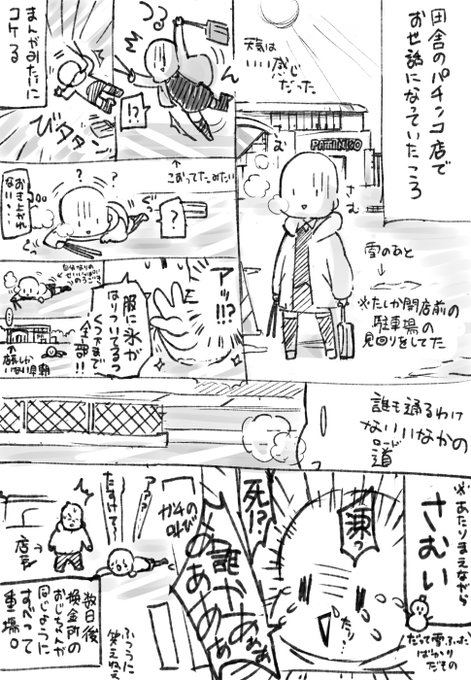 田舎のパチンコ店で
お世話になっていたころ
天気は
いい感じ
だった
PACHINKO
さむ
雪のあと
↓
※たしか開店前の
駐車場の
見回りをしてた
!?
↑
こおってたみたい
まんがみたいに
コケる
ビタァン
?
?
?
ぐっ
おき上がれ
ない…
アッ!!?
服に氷が
はりついてるっ
くつまで
全部!!
店長しか
いない早朝
誰も通るわけ
ないいなかの
道
※あたりまえながら
さむい
だって雪ふった
ばかり
だもの
凍っ
死!?
誰かぁぁぁ
あぁあぁ
ガチの
叫び
アアア
たすけて
店長→
ふつうに
笑えねえ
数日後
換金所の
おじちゃんが
同じように
すべって
重傷。